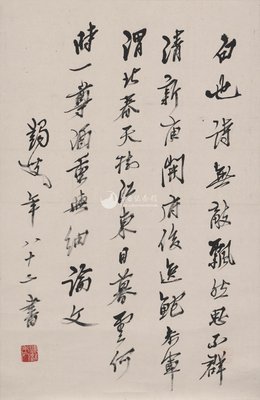 白也詩無敵飄然思不群
清新庾開府俊逸鮑參軍
渭北春天樹江東日暮雲何
時一尊酒重與細論文
鞠叟年八十二書